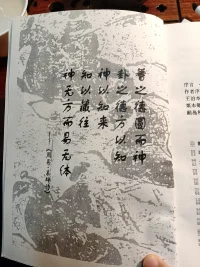 蓍之德圓而神
卦之德方以知
神以知来
知以藏往
神无方而易无体
——《周易·系辞传》
序言
作者序